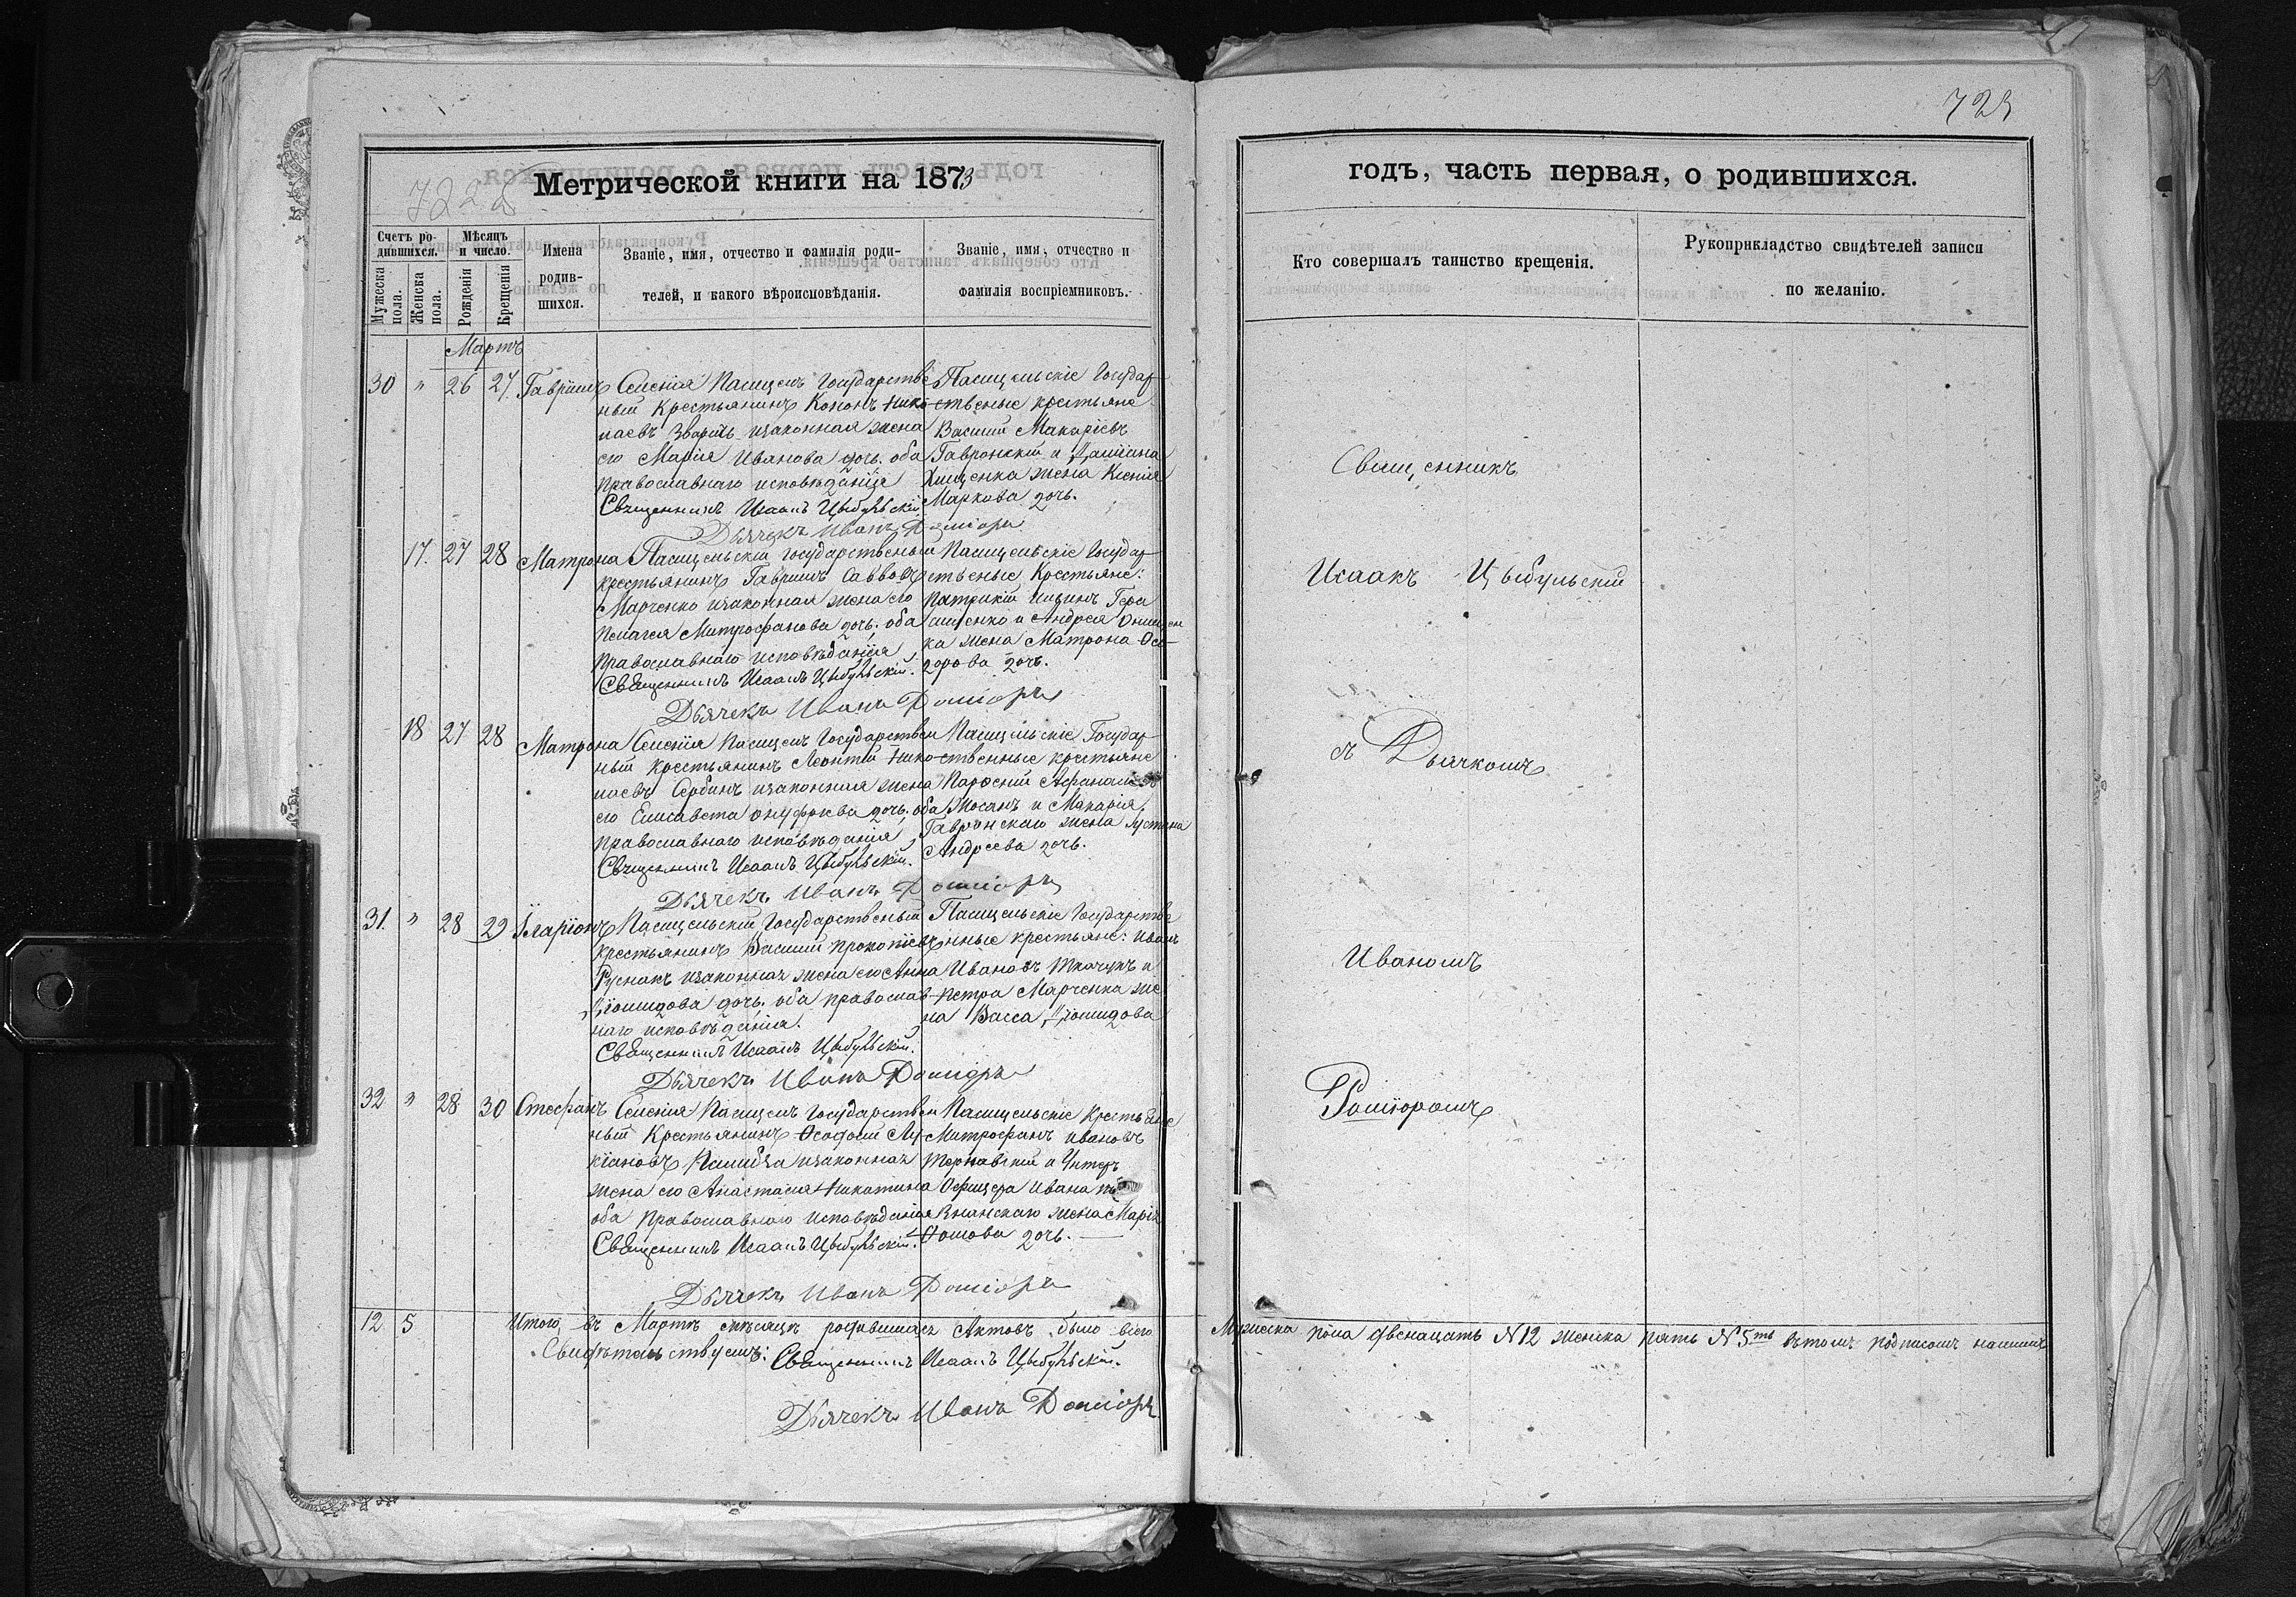 723
Метрической книги на 1873
годъ, часть первая, о родившихся.
722
Счетъ родившихся.
Мужеска пола.
Женска пола.
Мѣсяцъ и число.
Рожденія
Крещенія
Имена родившихся.
Званіе, имя, отчество и фамилія родителей, и какого вѣроисповѣданія.
Званіе, имя, отчество и фамилія воспріемниковъ.
Кто совершалъ таинство крещенія.
Рукоприкладство свидѣтелей записи
по желанію.
Мартъ
30 " 26 27. Гавріилъ
Селенія Пасицелъ Государстве
ный Крестьянинъ Кононъ Нико
лаевъ изаконная жена
его Марія Иванова дочь. оба
православнаго исповѣданія
Священникъ Исаакъ Цыбульскій
Дьячекъ Иванъ
Пасицельскіе Государ
ственые крестьяне
Василій Макаріевъ
Гавронскій и
жена Ксенія
Маркова дочь.
17. 27 28 Матрона
Пасицельскій государственый
крестьянинъ Гавриилъ Саввовъ
Марченко изаконная жена его
Пелагея Митрофанова дочь. оба
православнаго исповѣданія
Священникъ Исаакъ Цыбульскій.
Дьячекъ Иванъ
Пасицельскіе Государ
ственые Крестьяне:
Гера
сименко и Андрея Онищен
ка жена Матрона Ѳео
дорова дочь.
18 27 28 Матрона
Селенія Пасицелъ Государствен
ный крестьянинъ Леонтій Нико
лаевъ Сербинъ изаконная жена
его Елисавета онуфріева дочь. оба
православнаго исповѣданія
Священникъ Исаакъ Цыбульскій.
Дьячекъ Иванъ
Пасицельскіе Государ
ственные крестьяне
и Макарія
Гавронскаго жена Густина
Андреева дочь.
31. " 28 29 Іларіонъ
Пасицельскій Государственый
крестьянинъ Василій прокопіевъ
Руснакъ изаконная жена его Анна
дочь. оба православ
наго исповѣданія.
Священникъ Исаакъ Цыбульскій.
Дьячекъ Иванъ
Пасицельскіе Государстве
нные крестьяне: Иванъ
Ивановъ Ткачукъ и
Петра Марченка же
на Васса
32 " 28 30 Стефанъ
Селенія Пасицелъ Государствен
ный Крестьянинъ Ѳеодосій Лу
кіановъ изаконная
жена его Анастасія Никитина
оба православнаго исповѣданія
Священникъ Исаакъ Цыбульскій.
Дьячекъ Иванъ
Пасицельскіе Крестьяне
Митрофанъ ивановъ
Тернавскій и Унтеръ
Офицера Ивана
жена Марія
дочь.
Священникъ
Исаакъ Цыбульскій
съ Дьячкомъ
Иваномъ
12 5 Итого въ Мартѣ мѣсяцѣ родившихся Актовъ было всего Мужеска пола двенацать №12 женска пять №5ть вътомъ подписомъ нашимъ
Свидѣтельствуемъ: Священникъ Исаакъ Цыбульскій.
Дьячекъ Иванъ